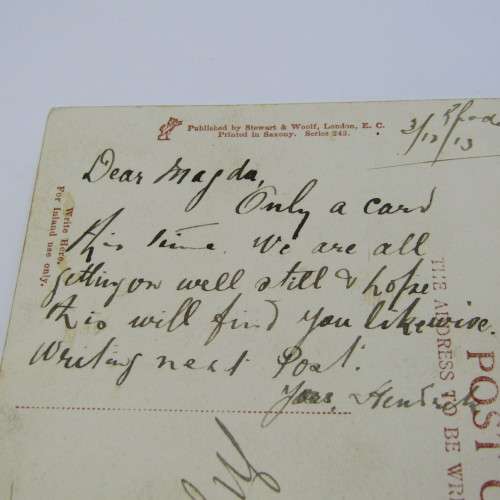 Published by Stewart & Woolf, London, E. C.
Printed in Saxony. Series 243.
3/12/13
Dear Magda,
Only a card
this time. We are all
getting on well still & hope
this will find you likewise.
Writing next Post.
Yours, Hendrik
Write Here.
For Inland use only.
POST C
THE ADDRESS TO BE WR